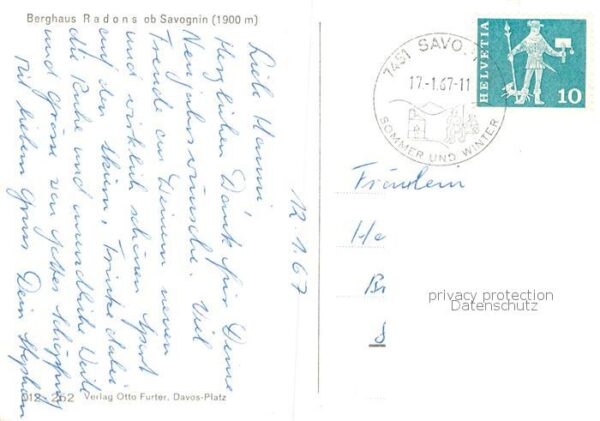 Berghaus Radons ob Savognin (1900 m)
Liebe Hanni
Herzlichen Dank für Deine
Neujahrswünsche. Viel
Freude an Deinem neuen
und wirklich schönen Sport
auf den Skiern, Trinke dabei
die Ruhe und unendliche Weite
und Grösse von Gottes Schöpfung
Mit liebem Gruss Dein Stephan
12.1.67
012-252 Verlag Otto Furter, Davos-Platz
7451 SAVO
17-1.67-11
SOMMER UND WINTER
HELVETIA
10
Fräulein
He
Br
privacy protection
Datenschutz